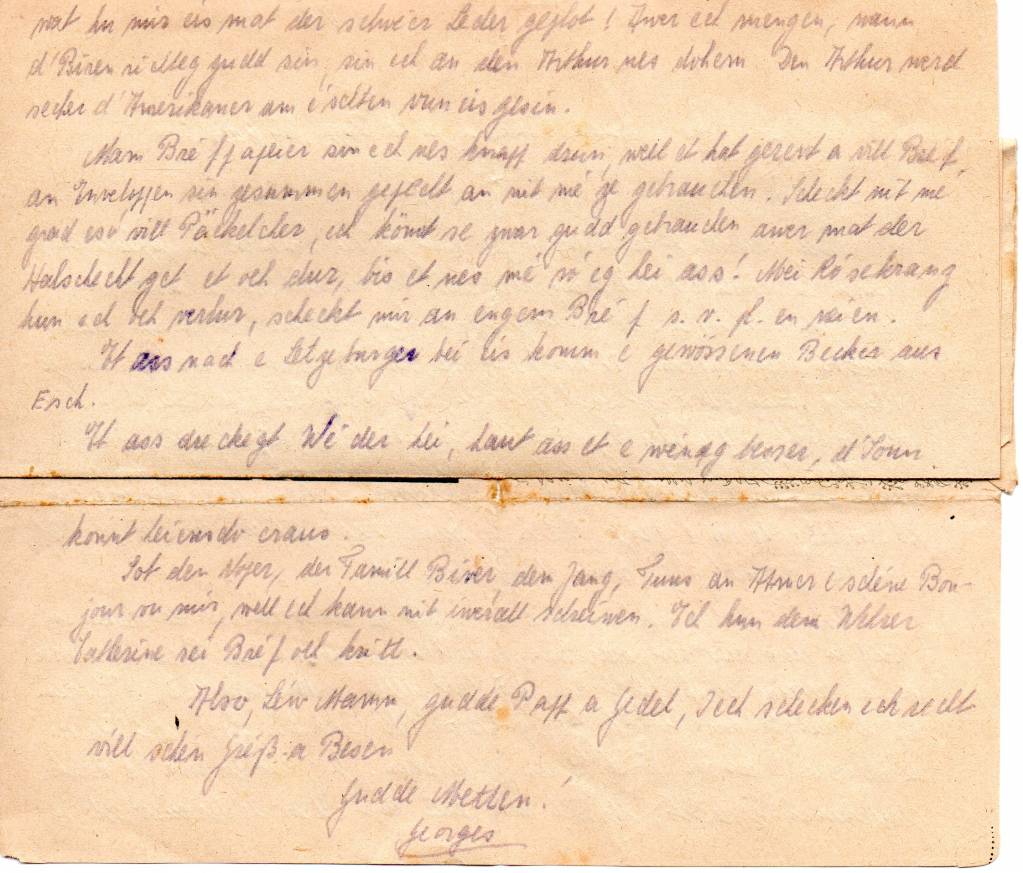 wat hu mir eis mat der schwéer Leder geplot! Zwer ech mengen, wann
d'Biren richteg gudd sin, sin ech an den Arthur nes dohem. Den Arthur werd
secher d'Amerikaner am éischten vun eis gesin.
Mam Bréfpapeier sin ech nes knapp drun, well et hat gerent a vill Bréf
an Enveloppen sin zesummen geplecht an nit mé ze gebrauchen. Scheckt nit mé
grad eso vill Päckelcher, ech könnt se zwar gudd gebrauchen awer mat der
Halschecht get et och dur, bis et nes mé rö'eg hei ass! Mei Rósekranz
hun ech och verlur, scheckt mir an engem Bréf s. v. pl. en neien.
Et ass nach e Letzeburger bei eis komm e gewössenen Becker aus
Esch.
Et ass dreckegt Wéder hei, haut ass et e wéineg besser, d'Sonn
konnt heiensdo eraus.
Sot den Mejer, der Famill Biver, dem Jang, Tunn an Anner e schéne Bon-
jour vu mir, well ech kann nit iwerall schreiwen. Ech hun dem Welter
Catherine sei Bréf och kritt.
Also, léiw Mamm, gudde Papp a Gedel, Iech schecken ech recht
vill schén Gréiß a Besen
Gudde Metten!
Georges